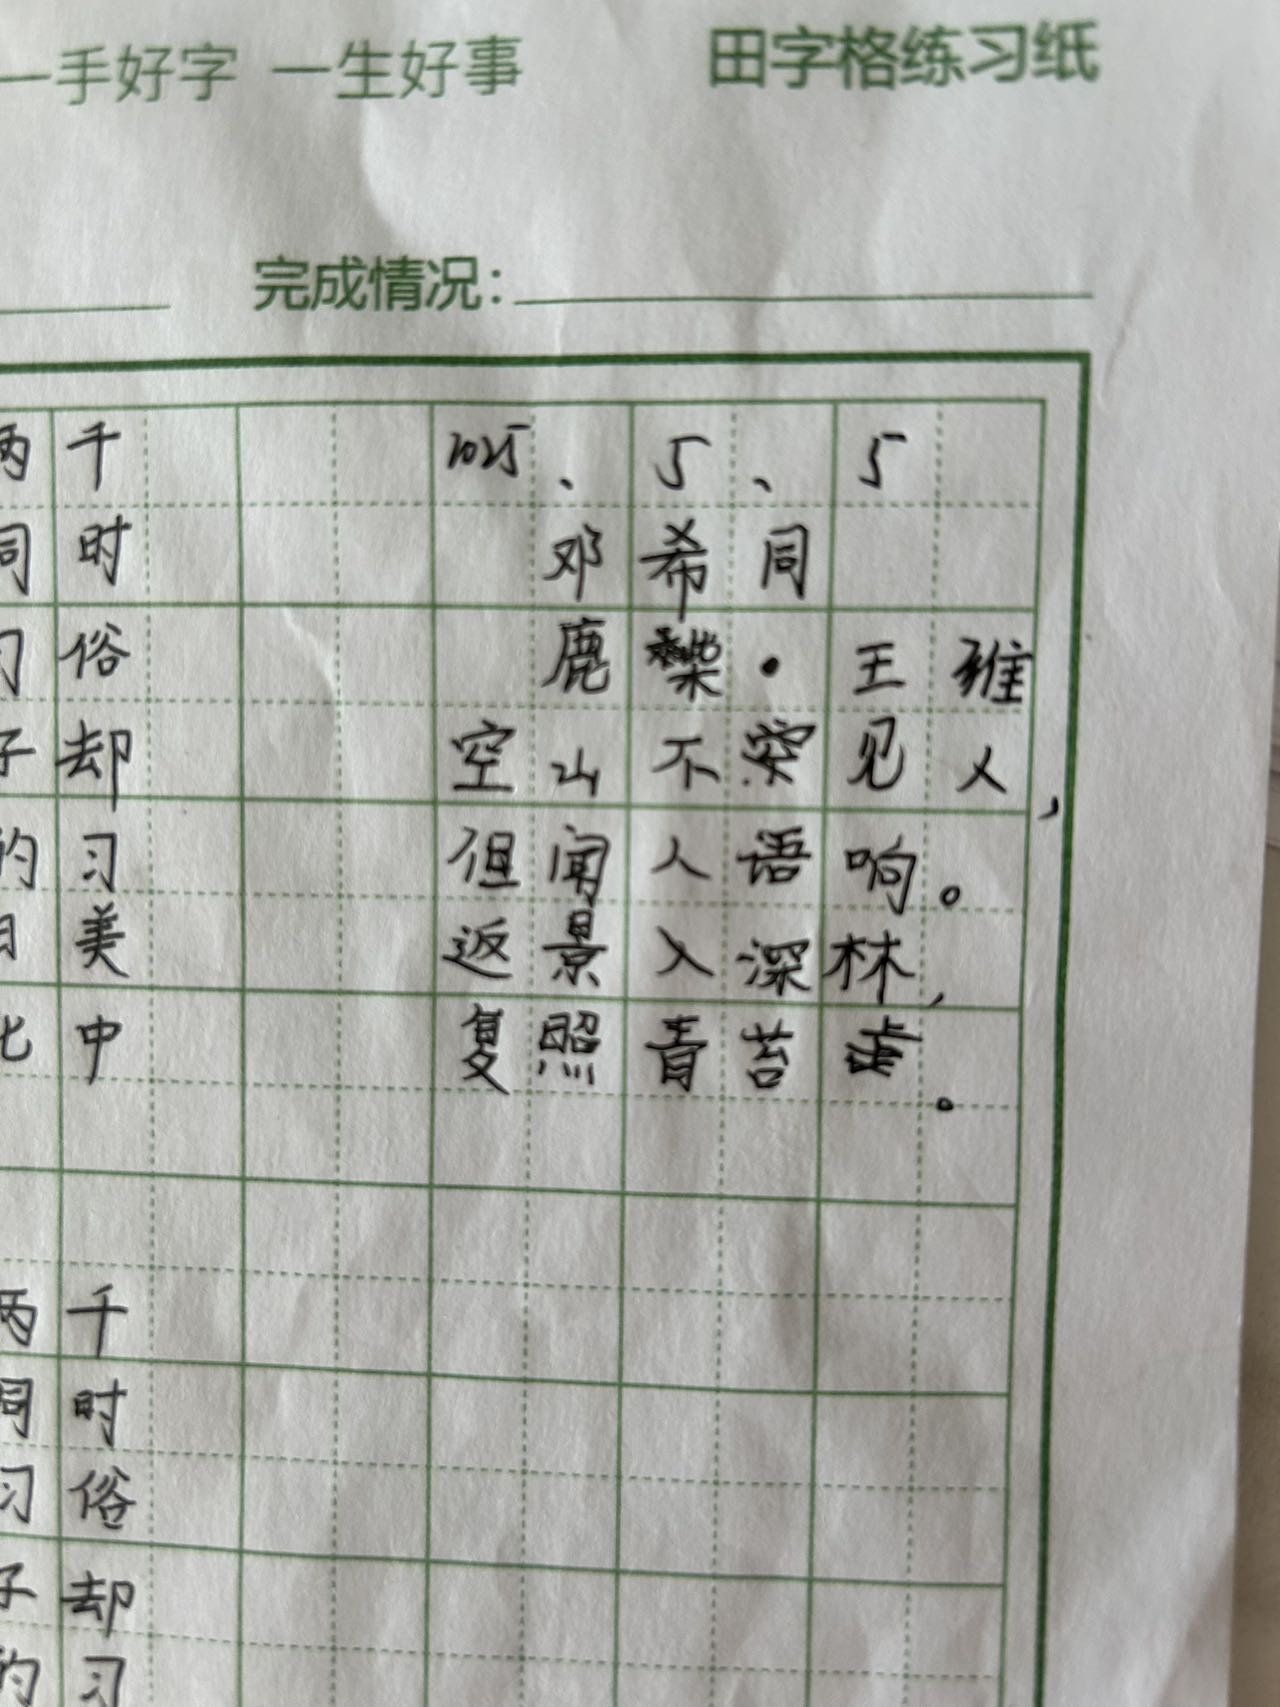 一手好字 一生好事 田字格练习纸
完成情况：
两千 2025、5、5
同时 邓希同
习俗 鹿柴·王维
子却 空山不见人，
的习 但闻人语响。
美 返景入深林，
化中 复照青苔
两千
同时
习俗
子却
的习